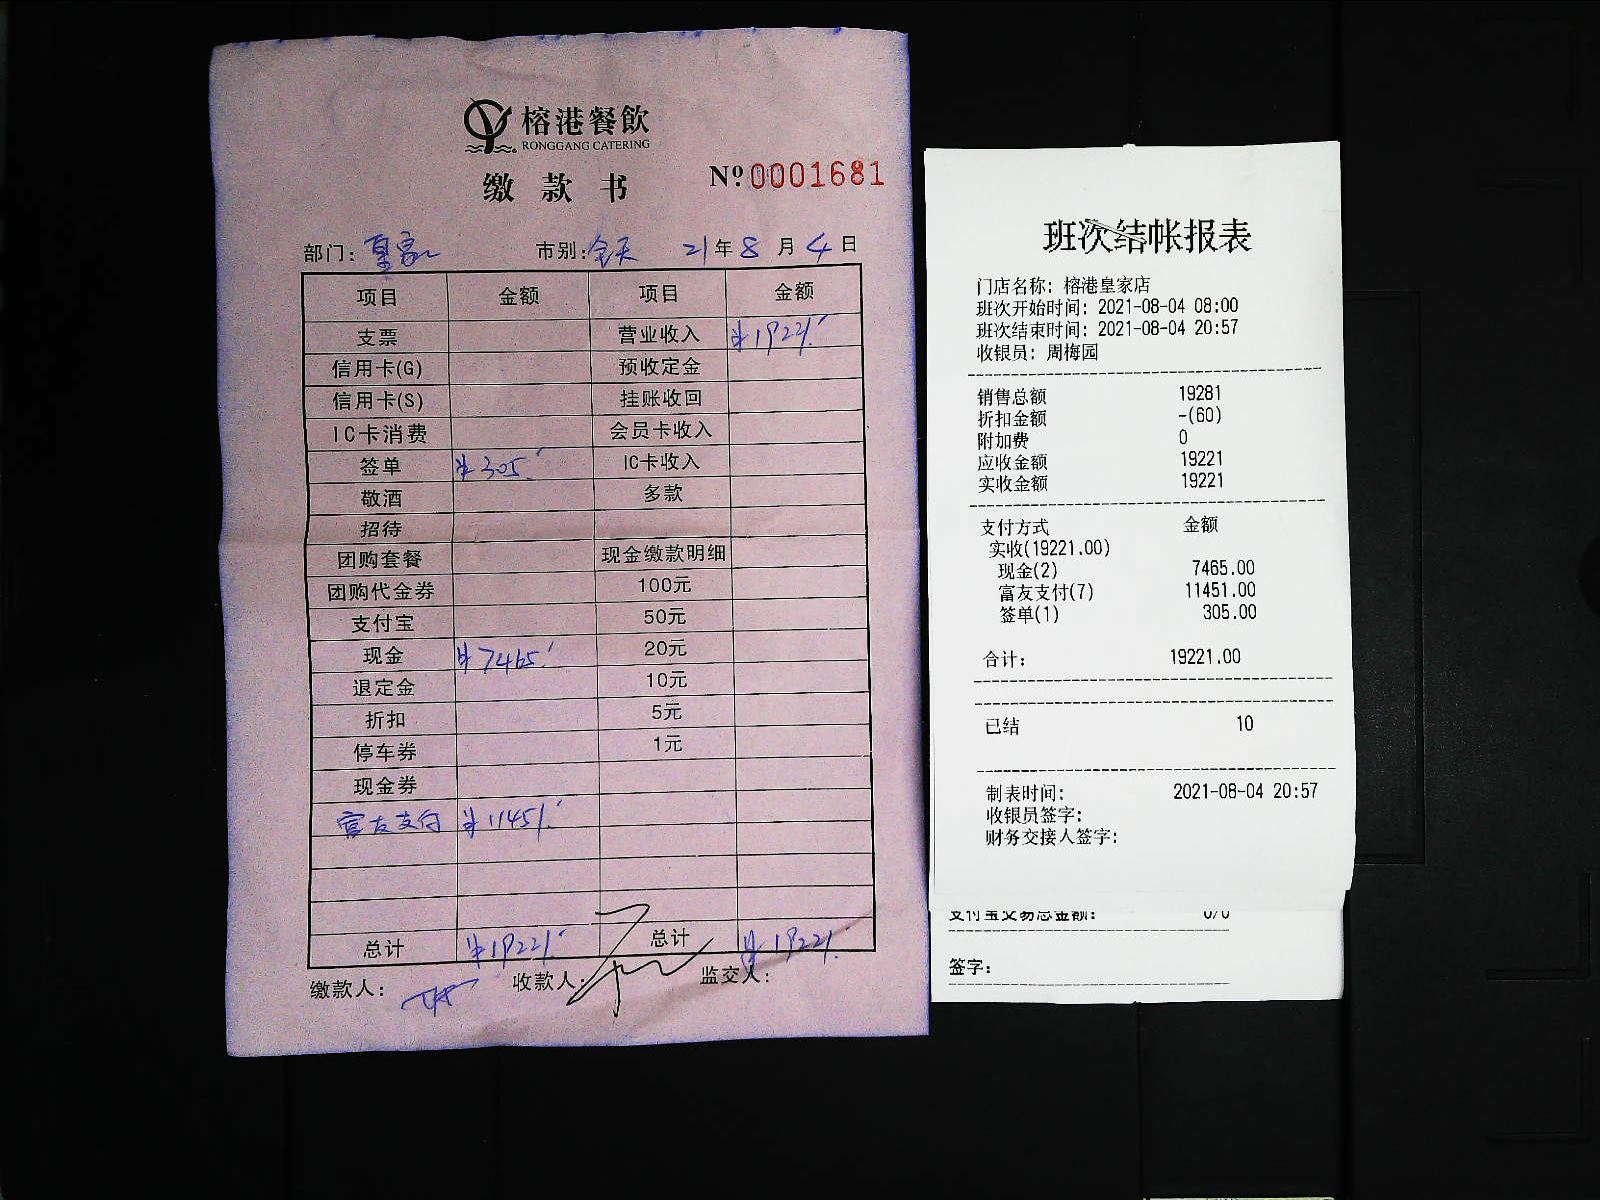 榕港餐飲
RONGGANG CATERING
缴款书 Nº 0001681
部门：皇家 市别：全天 21年8月4日
项目 金额 项目 金额
支票 营业收入 ¥19221.
信用卡(G) 预收定金
信用卡(S) 挂账收回
IC卡消费 会员卡收入
签单 ¥305. IC卡收入
敬酒 多款
招待
团购套餐 现金缴款明细
团购代金券 100元
支付宝 50元
现金 ¥7465. 20元
退定金 10元
折扣 5元
停车券 1元
现金券
富友支付 ¥11451.
总计 ¥19221. 总计 ¥19221.
缴款人： 收款人： 监交人：
班次结帐报表
门店名称：榕港皇家店
班次开始时间：2021-08-04 08:00
班次结束时间：2021-08-04 20:57
收银员：周梅园
销售总额 19281
折扣金额 -(60)
附加费 0
应收金额 19221
实收金额 19221
支付方式 金额
实收(19221.00)
现金(2) 7465.00
富友支付(7) 11451.00
签单(1) 305.00
合计： 19221.00
已结 10
制表时间： 2021-08-04 20:57
收银员签字：
财务交接人签字：
支付宝交易总金额： 0/0
签字：